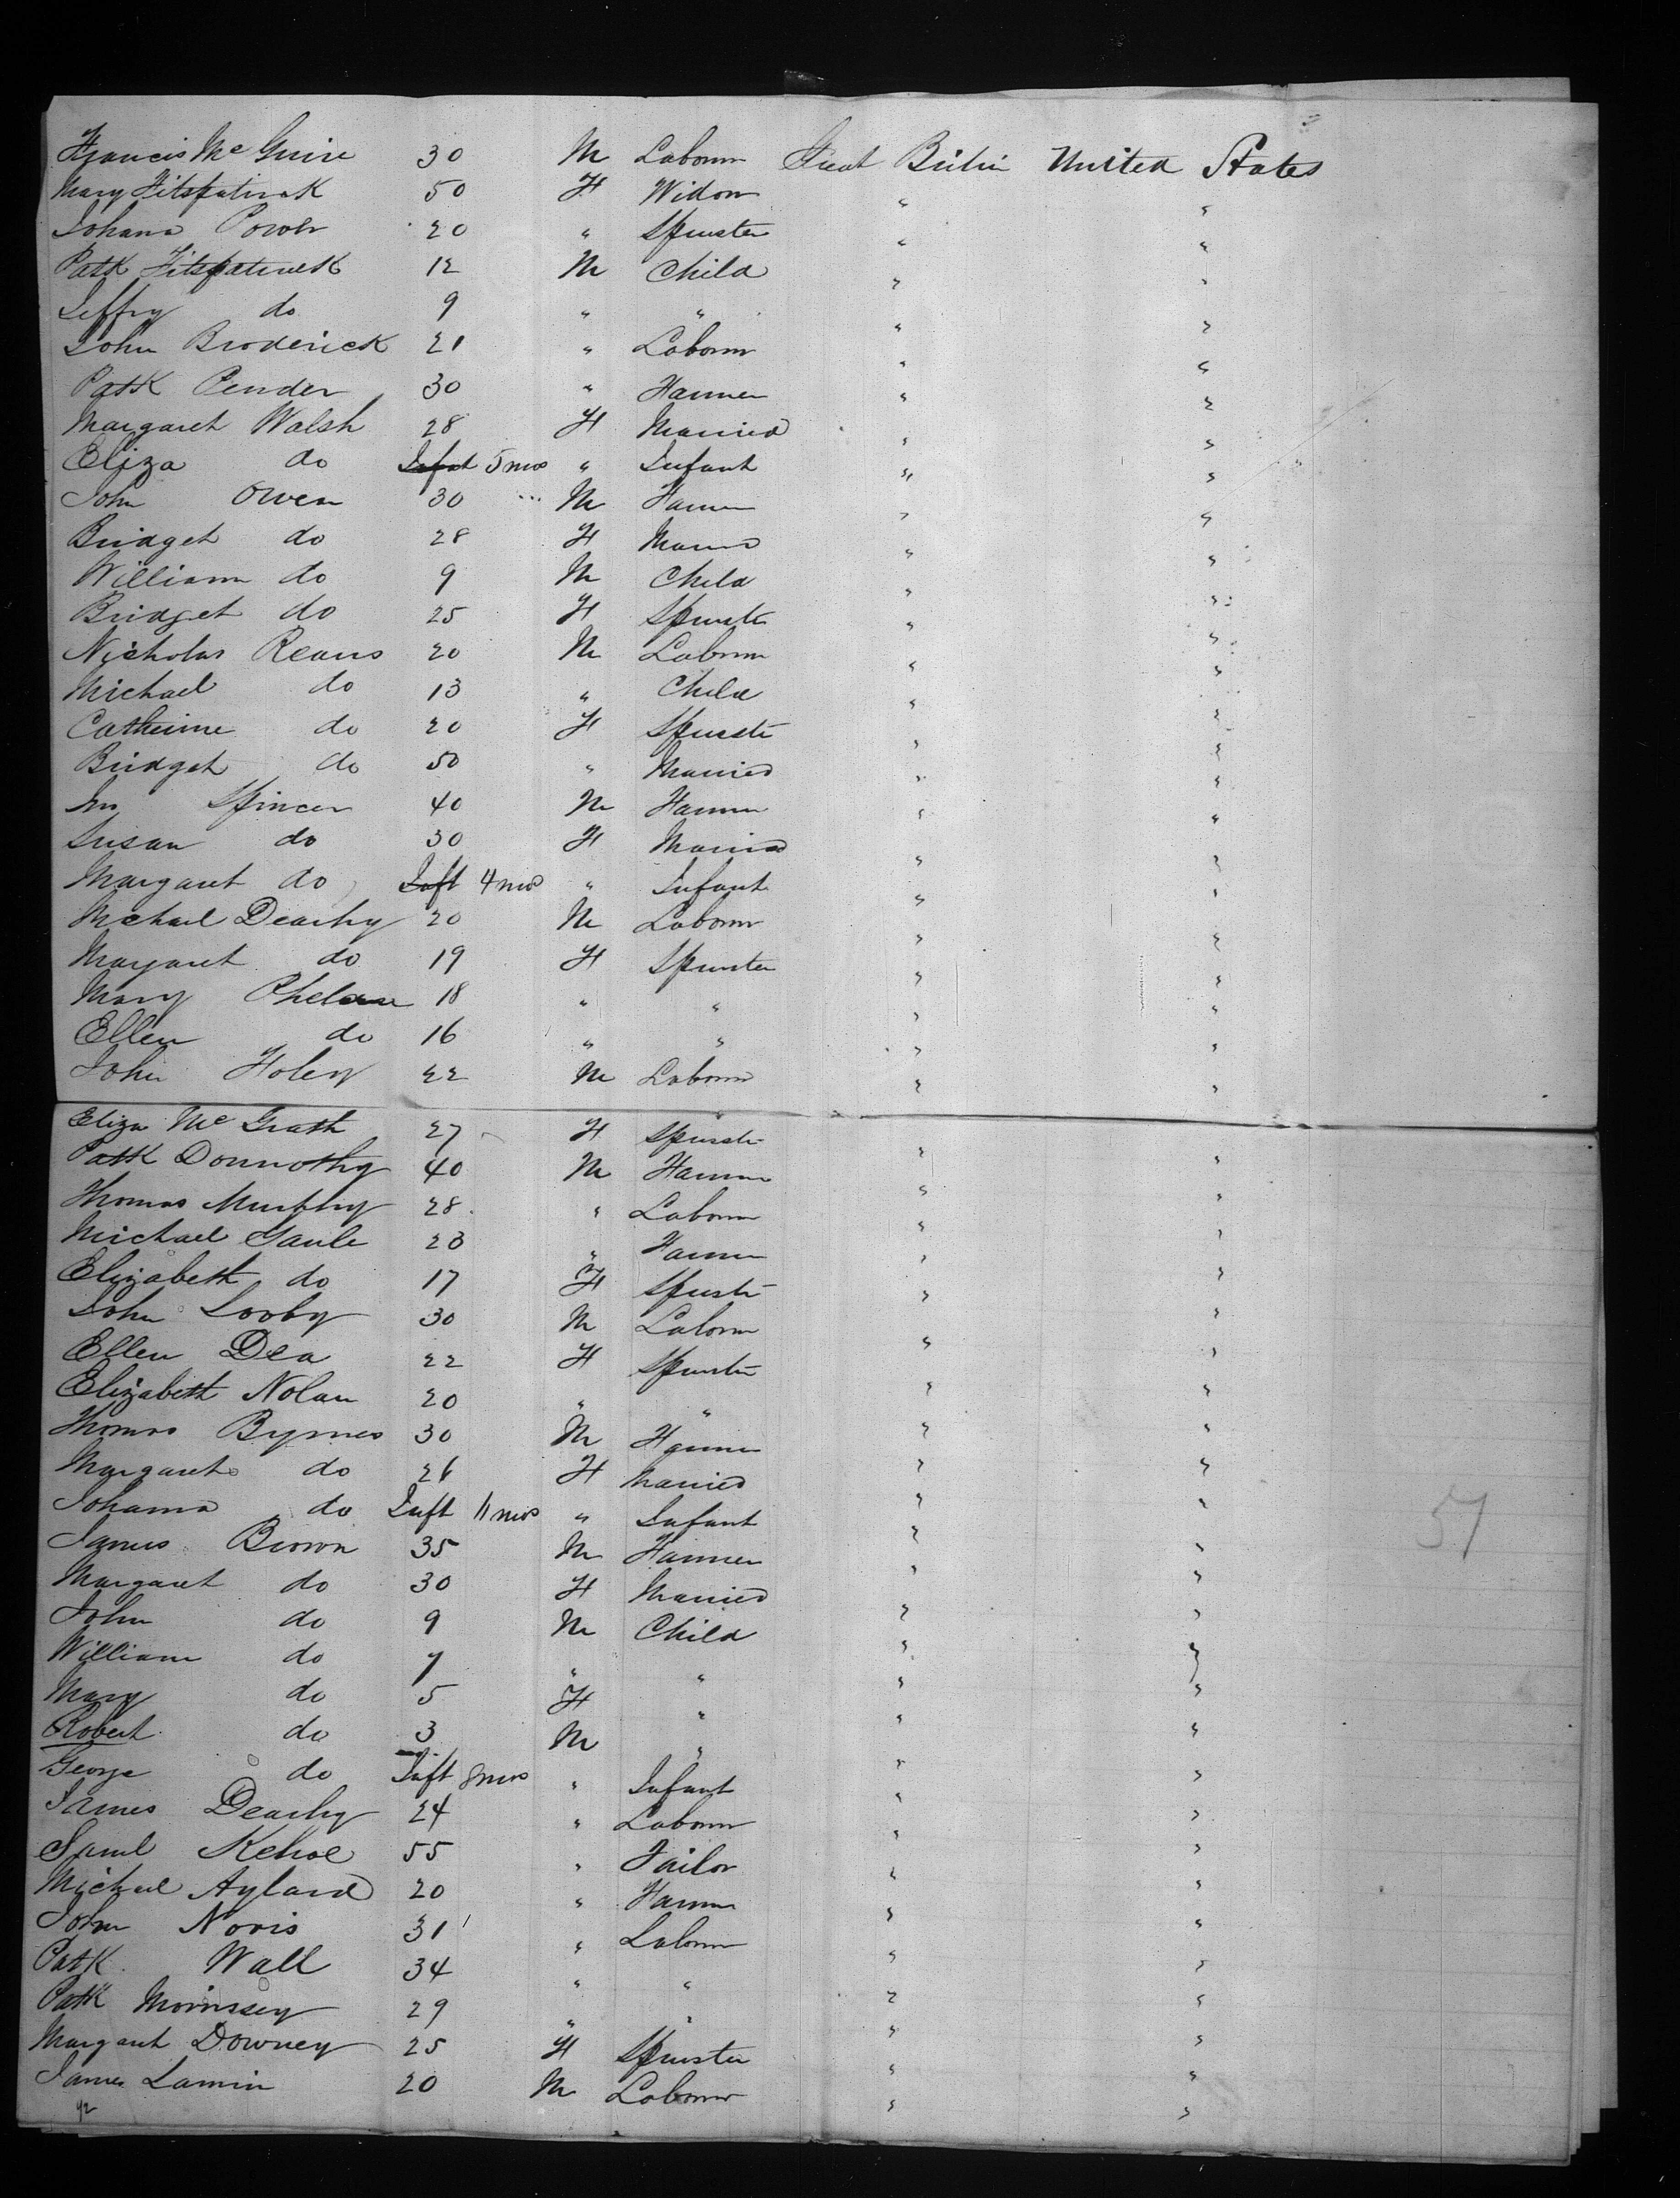 Francis McGuire 30 M Laborer Great Britain United States
Mary Fitzpatrick 50 F Widow " "
Johana Power 20 " Spinster " "
Patk Fitzpatrick 12 M Child " "
Jeffry do 9 " " " "
John Broderick 21 " Laborer " "
Patk Pender 30 " Farmer " "
Margaret Walsh 28 F Married " "
Eliza do Infant 5 mos " Infant " "
John Owen 30 M Farmer " "
Bridget do 28 F Married " "
William do 9 M Child " "
Bridget do 25 F Spinster " "
Nicholas Reavis 20 M Laborer " "
Michael do 13 " Child " "
Catherine do 20 F Spinster " "
Bridget do 50 " Married " "
Jno Spincer 40 M Farmer " "
Susan do 30 F Married " "
Margaret do Inft 4 mos " Infant " "
Michael Deachy 20 M Laborer " "
Margaret do 19 F Spinster " "
Mary Phelan 18 " " " "
Ellen do 16 " " " "
John Foley 22 M Laborer " "
Eliza McGrath 27 F Spinster " "
Patk Donnothy 40 M Farmer " "
Thomas Murphy 28 " Laborer " "
Michael Gaule 23 " Farmer " "
Elizabeth do 17 F Spinster " "
John Looby 30 M Laborer " "
Ellen Dea 22 F Spinster " "
Elizabeth Nolan 20 " " " "
Thomas Byrnes 30 M Farmer " "
Margaret do 26 F Married " "
Johanna do Inft 11 mos " Infant " "
James Brown 35 M Farmer " "
Margaret do 30 F Married " "
John do 9 M Child " "
William do 7 " " " "
Mary do 5 F " " "
Robert do 3 M " " "
George do Inft 8 mos " Infant " "
James Deachy 24 " Laborer " "
Saml Kehoe 55 " Tailor " "
Michael Aylard 20 " Farmer " "
John Noris 31 " Laborer " "
Patk Wall 34 " " " "
Patk Morrissey 29 " " " "
Margaret Downey 25 F Spinster " "
James Lamin 20 M Laborer " "
57